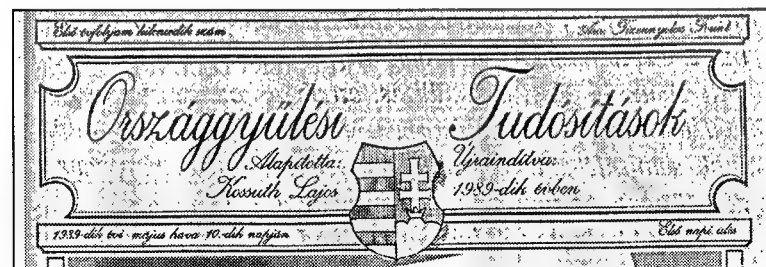 Első évfolyam
Ára: Tizennyolcz Forint
Országgyűlési Tudósítások
Alapította: Kossuth Lajos
Újraindítva: 1989-dik évben
1989-dik évi május hava 10-dik napján
Első napi ülés